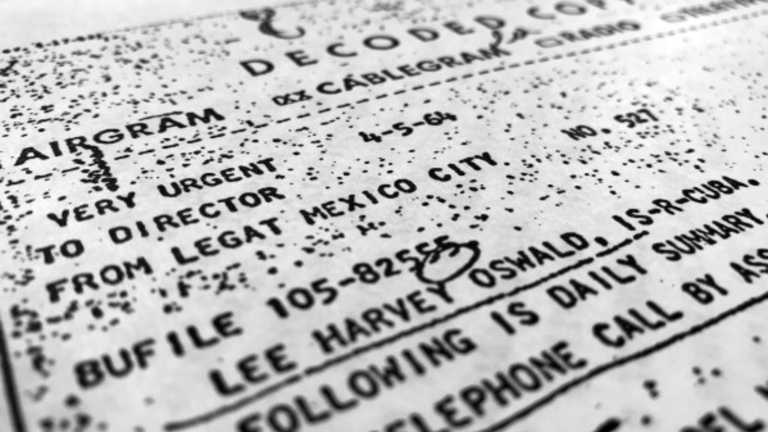 DECODED COPY
AIRGRAM XX CABLEGRAM RADIO
4-5-64 NO. 527
VERY URGENT
TO DIRECTOR
FROM LEGAT MEXICO CITY
BUFILE 105-82555
LEE HARVEY OSWALD, IS-R-CUBA.
FOLLOWING IS DAILY SUMMARY.
TELEPHONE CALL BY